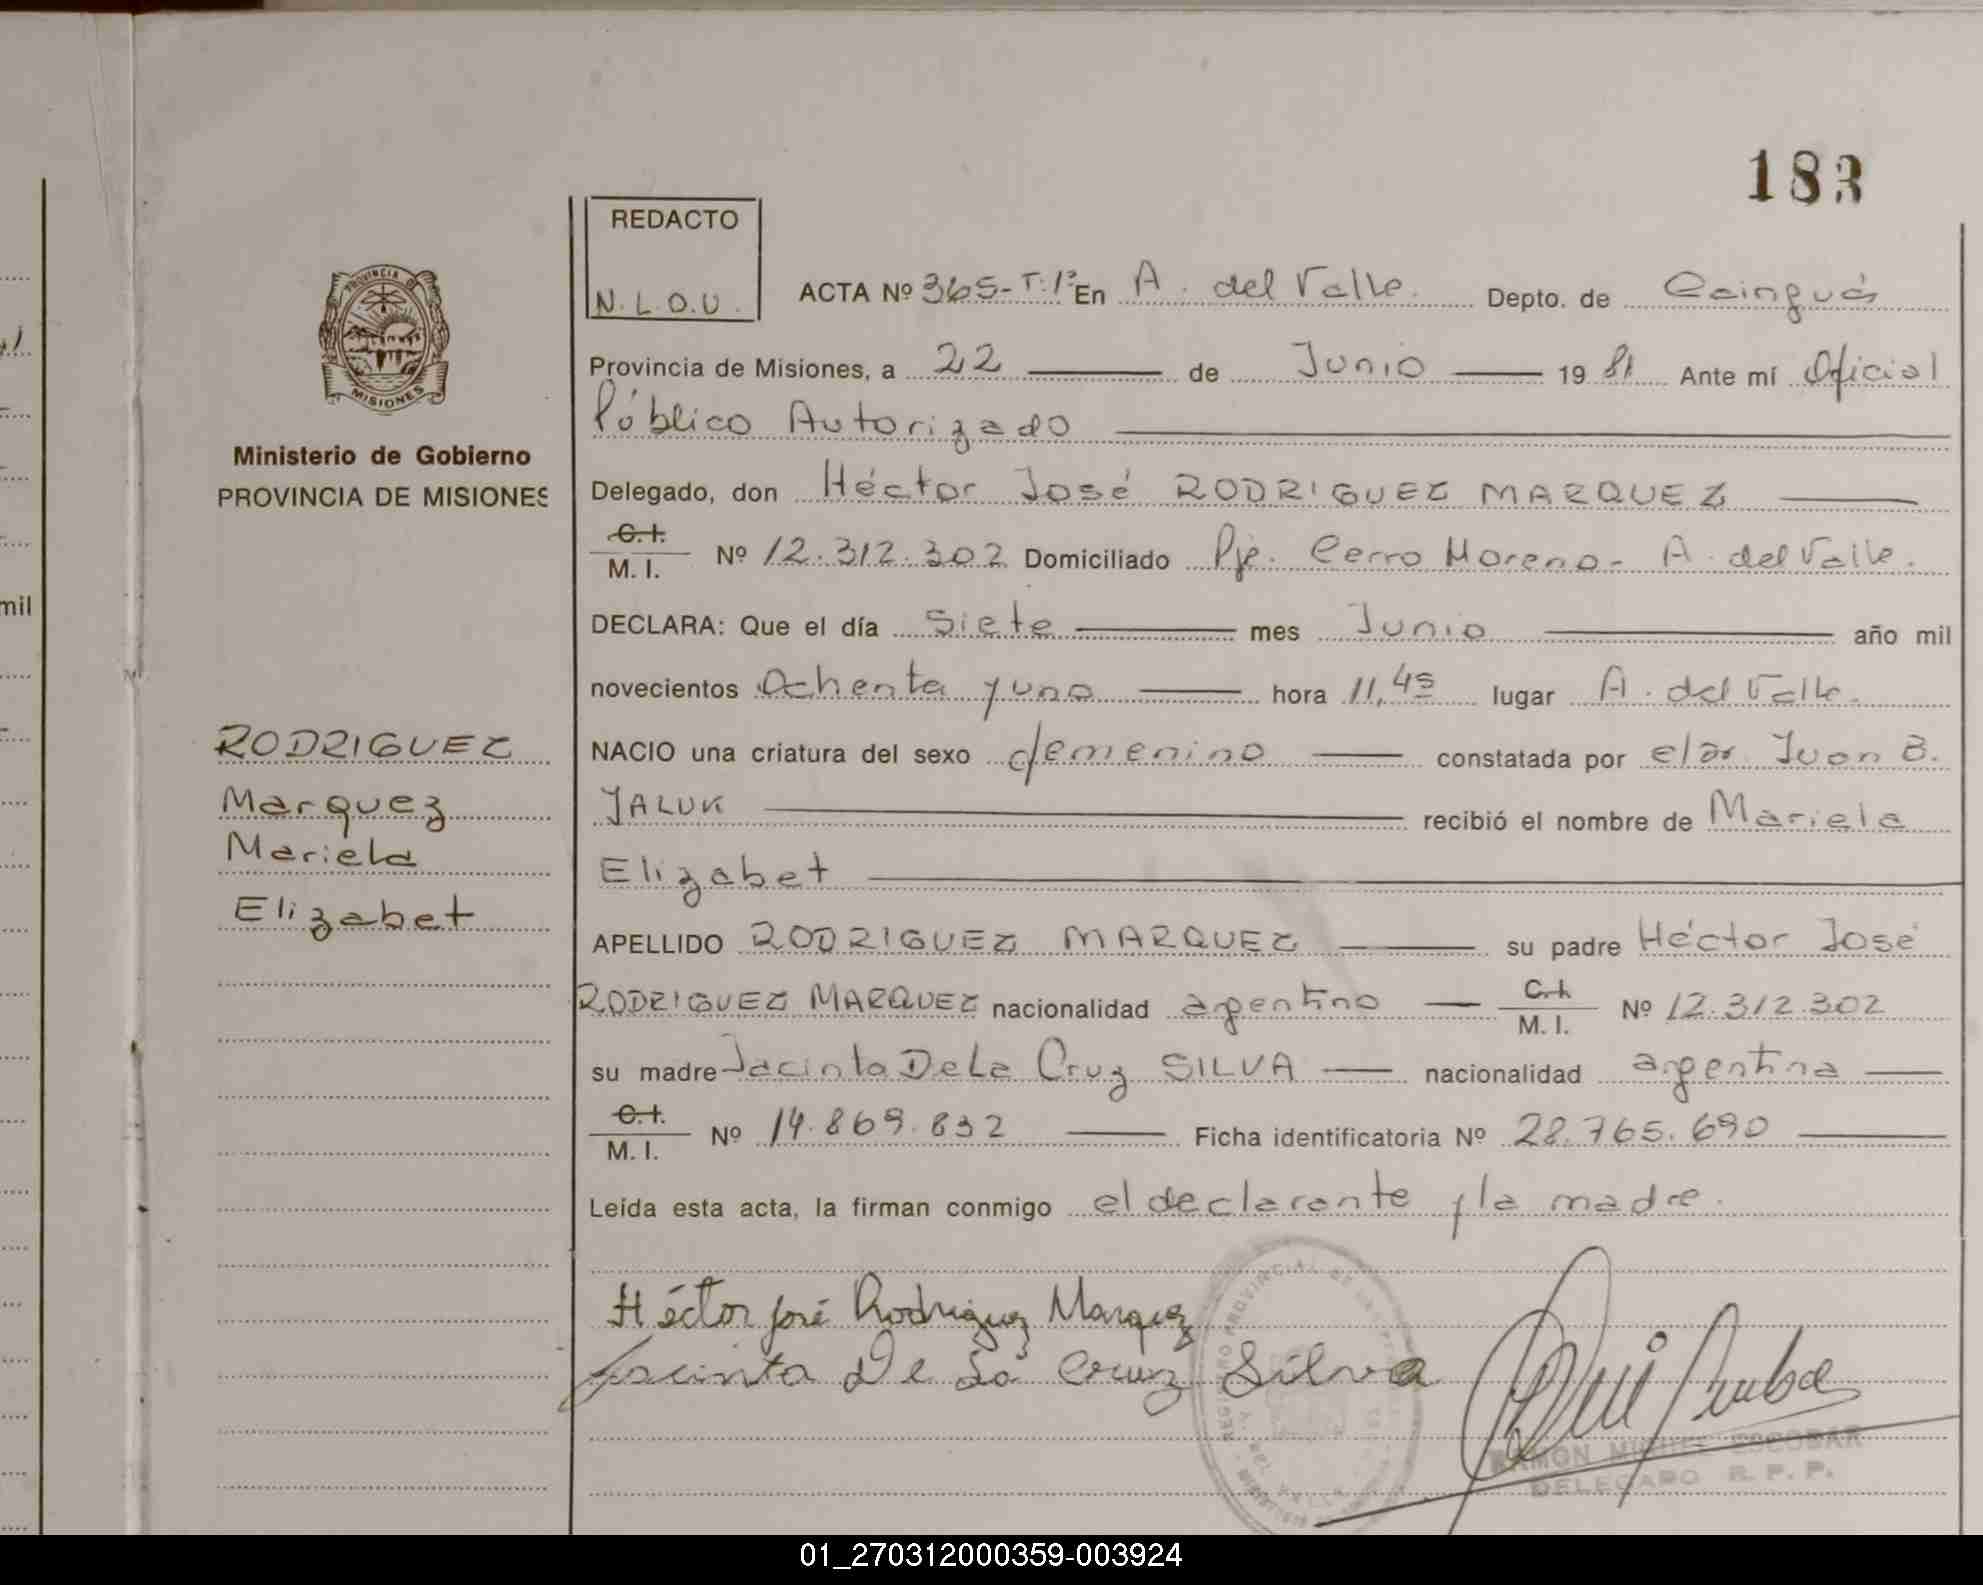 183
REDACTO
N.L.O.U.
ACTA Nº 365-T:1º En A. del Valle. Depto. de Cainguás
PROVINCIA DE
MISIONES
Provincia de Misiones, a 22 de Junio 1981 Ante mí Oficial
Público Autorizado
Ministerio de Gobierno
PROVINCIA DE MISIONES
Delegado, don Héctor José RODRIGUEZ MARQUEZ
C.I.
M.I. Nº 12.312.302 Domiciliado Pje. Cerro Moreno- A. del Valle.
mil
DECLARA: Que el día Siete mes Junio año mil
novecientos Ochenta y uno hora 11,45 lugar A. del Valle.
RODRIGUEZ
Marquez
Mariela
Elizabet
NACIO una criatura del sexo femenino constatada por el Dr. Juan B.
JALUK recibió el nombre de Mariela
Elizabet
APELLIDO RODRIGUEZ MARQUEZ su padre Héctor José
RODRIGUEZ MARQUEZ nacionalidad argentino C.I. M.I. Nº 12.312.302
su madre Jacinta De La Cruz SILVA nacionalidad argentina
C.I.
M.I. Nº 14.869.832 Ficha identificatoria Nº 28.765.690
Leída esta acta, la firman conmigo el declarante y la madre.
Héctor José Rodriguez Marquez
Jacinta De La Cruz Silva
REGISTRO PROVINCIAL DE LAS PERSONAS
RAMON MIGUEL ESCOBAR
DELEGADO R. P. P.
01_270312000359-003924